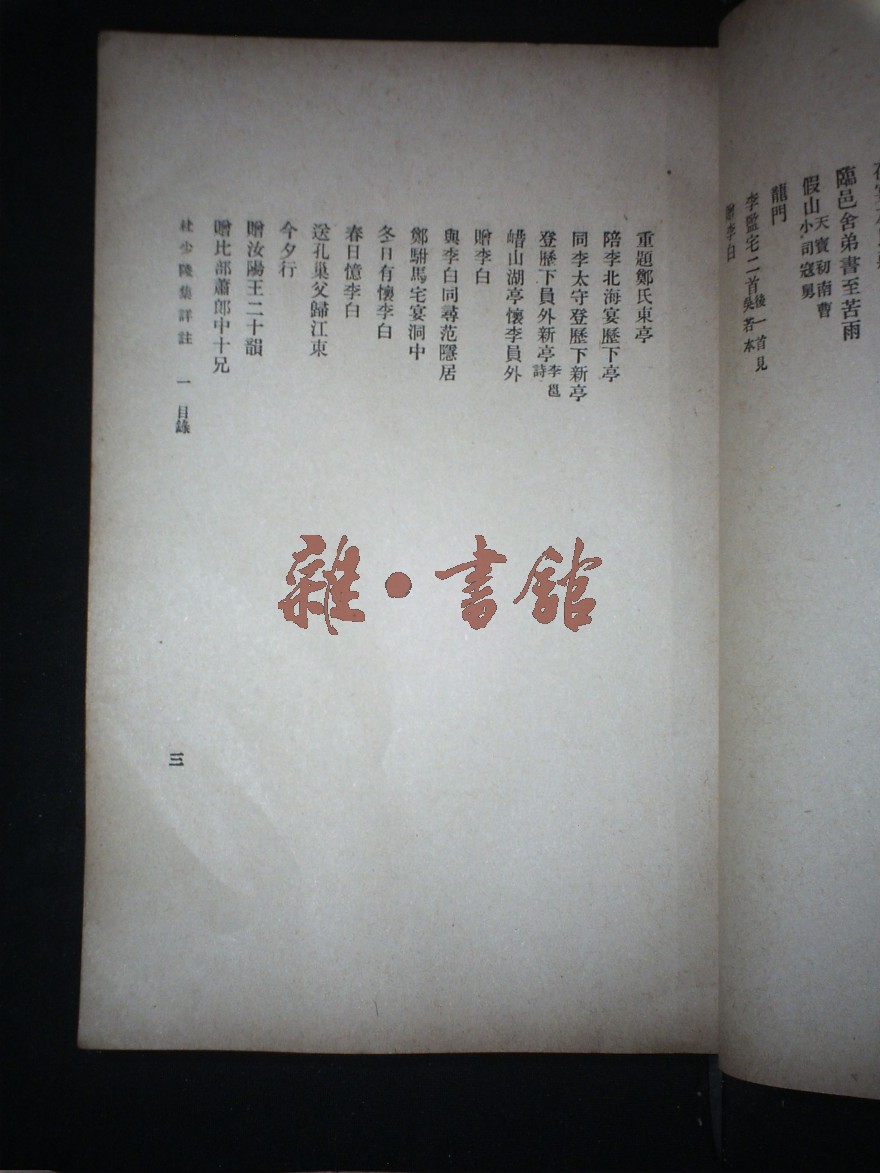 臨邑舍弟書至苦雨
假山天寶初南曹小司寇舅
龍門
李監宅二首後一首見吳若本
贈李白
重題鄭氏東亭
陪李北海宴歷下亭
同李太守登歷下新亭
登歷下員外新亭李邕詩
𡺸山湖亭懷李員外
贈李白
與李白同尋范隱居
鄭駙馬宅宴洞中
冬日有懷李白
春日憶李白
送孔巢父歸江東
今夕行
贈汝陽王二十韻
贈比部蕭郎中十兄
杜少陵集詳註 一 目錄
三
雜·書館